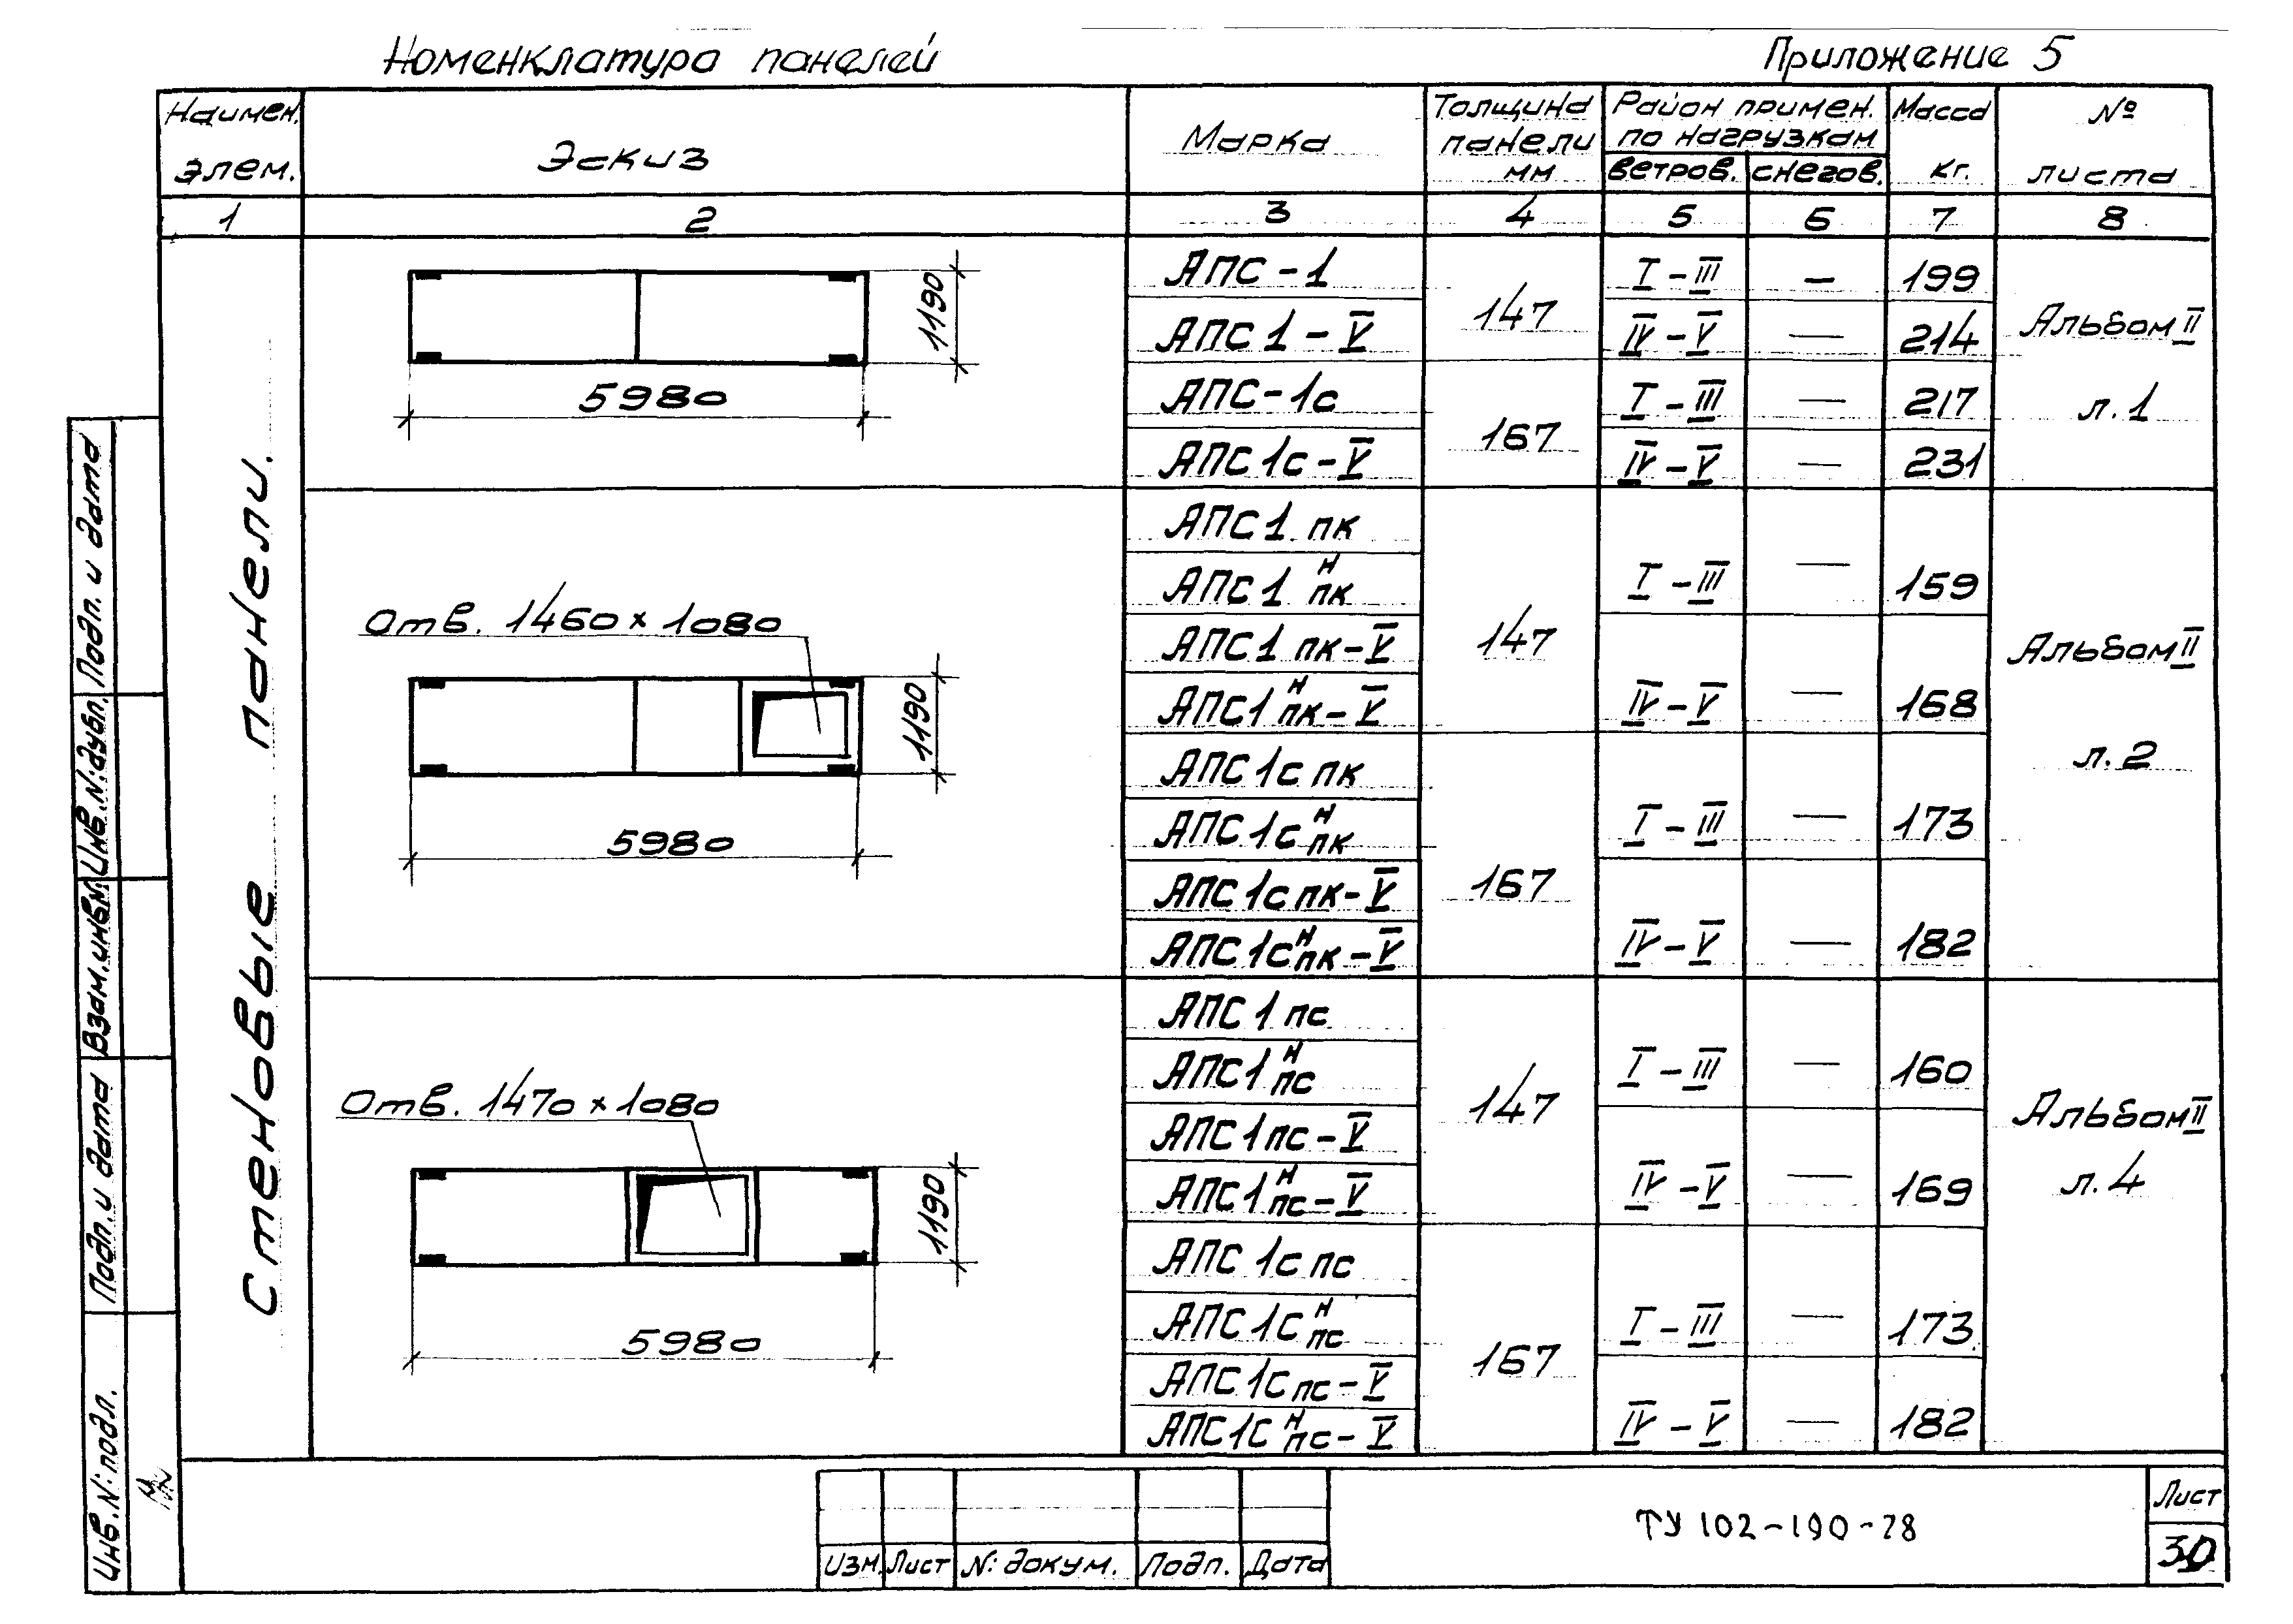 Номенклатура панелей
Приложение 5
Наимен. элем.
Эскиз
Марка
Толщина панели мм
Район примен. по нагрузкам
ветров.
снегов.
Масса кг.
№ листа
1 2 3 4 5 6 7 8
Стеновые панели.
1190
5980
АПС-1 147 I-III — 199 Альбом II л.1
АПС1-V IV-V — 214
АПС-1с 167 I-III — 217
АПС1с-V IV-V — 231
Отв. 1460×1080
1190
5980
АПС1 пк 147 I-III — 159 Альбом II л.2
АПС1 н пк
АПС1 пк-V IV-V — 168
АПС1 н пк-V
АПС1с пк 167 I-III — 173
АПС1с н пк
АПС1с пк-V IV-V — 182
АПС1с н пк-V
Отв. 1470×1080
1190
5980
АПС1 пс 147 I-III — 160 Альбом II л.4
АПС1 н пс
АПС1 пс-V IV-V — 169
АПС1 н пс-V
АПС1с пс 167 I-III — 173
АПС1с н пс
АПС1с пс-V IV-V — 182
АПС1с н пс-V
Подп. и дата
Инв.N:дубл.
Взам.инв.N
Подп. и дата
Инв.N:подл.
Изм. Лист N:докум. Подп. Дата
ТУ 102-190-78
Лист
30